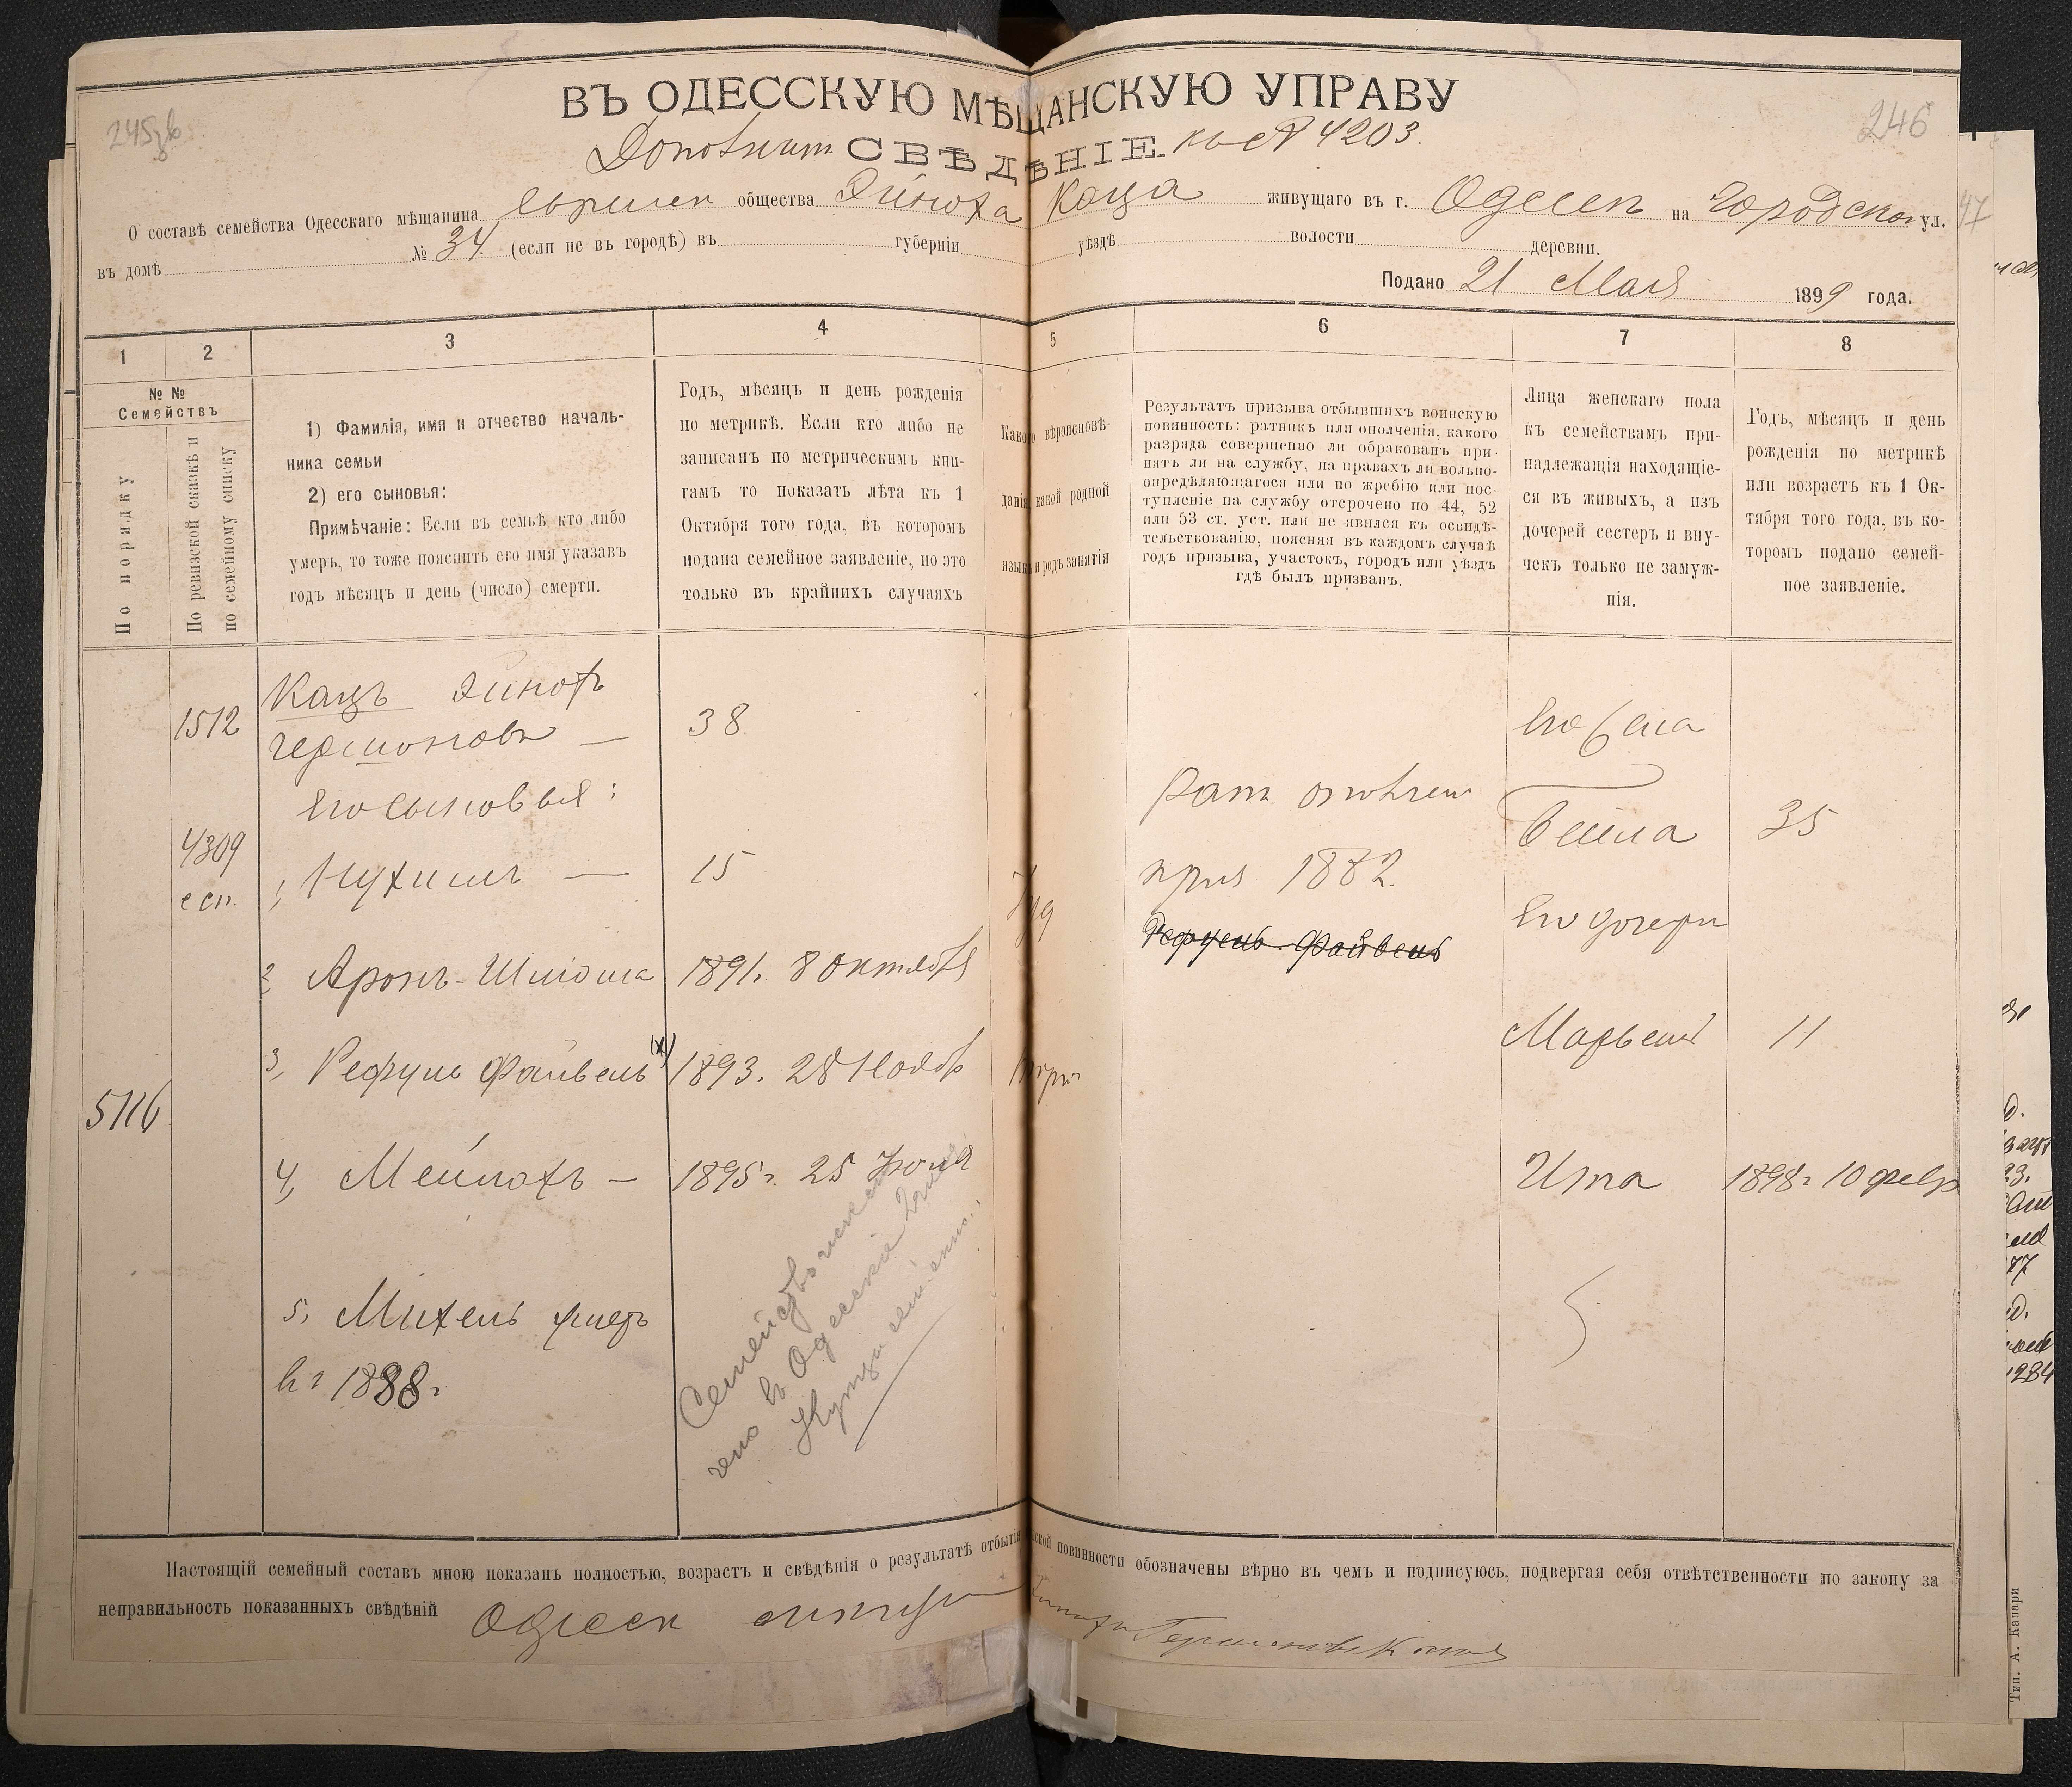 245зв
246
47
ВЪ ОДЕССКУЮ МѢЩАНСКУЮ УПРАВУ
Дополнит СВѢДѢНІЕ. къ № 4203.
О составѣ семейства Одесскаго мѣщанина евреиск общества Эйноха Каца живущаго въ г. Одессѣ на Городской ул.
въ домѣ № 34 (если не въ городѣ) въ губерніи уѣздѣ волости деревни.
Подано 21 Мая 1899 года.
1 2 3 4 5 6 7 8
№ №
Семействъ
По порядку
По ревизской сказкѣ и
по семейному списку
1) Фамилія, имя и отчество началь-
ника семьи
2) его сыновья:
Примѣчаніе: Если въ семьѣ кто либо
умеръ, то тоже пояснить его имя указавъ
годъ мѣсяцъ и день (число) смерти.
Годъ, мѣсяцъ и день рожденія
по метрикѣ. Если кто либо не
записанъ по метрическимъ кни-
гамъ то показать лѣта къ 1
Октября того года, въ которомъ
подана семейное заявленіе, но это
только въ крайнихъ случаяхъ
Какого вѣроисповѣ-
данія какой родной
языкъ и родъ занятія
Результатъ призыва отбывшихъ воинскую
повинность: ратникъ или ополченія, какого
разряда совершенно ли обракованъ при-
нятъ ли на службу, на правахъ ли вольно-
опредѣляющагося или по жребію или пос-
тупленіе на службу отсрочено по 44, 52
или 53 ст. уст. или не явился къ освидѣ-
тельствованію, поясняя въ каждомъ случаѣ
годъ призыва, участокъ, городъ или уѣздъ
гдѣ былъ призванъ.
Лица женскаго пола
къ семействамъ при-
надлежащія находящіе-
ся въ живыхъ, а изъ
дочерей сестеръ и вну-
чекъ только не замуж-
нія.
Годъ, мѣсяцъ и день
рожденія по метрикѣ
или возрастъ къ 1 Ок-
тября того года, въ ко-
торомъ подано семей-
ное заявленіе.
1512 Кацъ Эйнохъ
Гершоновъ — 38
Его жена
его сыновья:
Рат ополчен
4309
е сп. 1, Нухимъ — 15
Іуд
приз 1882.
Бейла 35
Рефуель Файвель
Его дочери
2, Аронъ-Шлюма 1891г. 8 Октября
3, Рефуль Файвель х) 1893. 28 Нояб
торг
Марьем 11
5116
4, Мейлохъ — 1895г. 25 Іюля
Ита 1898г. 10 февр
5, Михель умеръ
въ 1898г.
Семейство исклю
чено въ Одесскіе 2 гил
Купцы
Настоящій семейный составъ мною показанъ полностью, возрастъ и свѣдѣнія о результатѣ отбытія воинской повинности обозначены вѣрно въ чемъ и подписуюсь, подвергая себя отвѣтственности по закону за
неправильность показанныхъ свѣдѣній Одесск мѣщ Эйнохъ Гершоновъ Кацъ
Тип. А. Капари